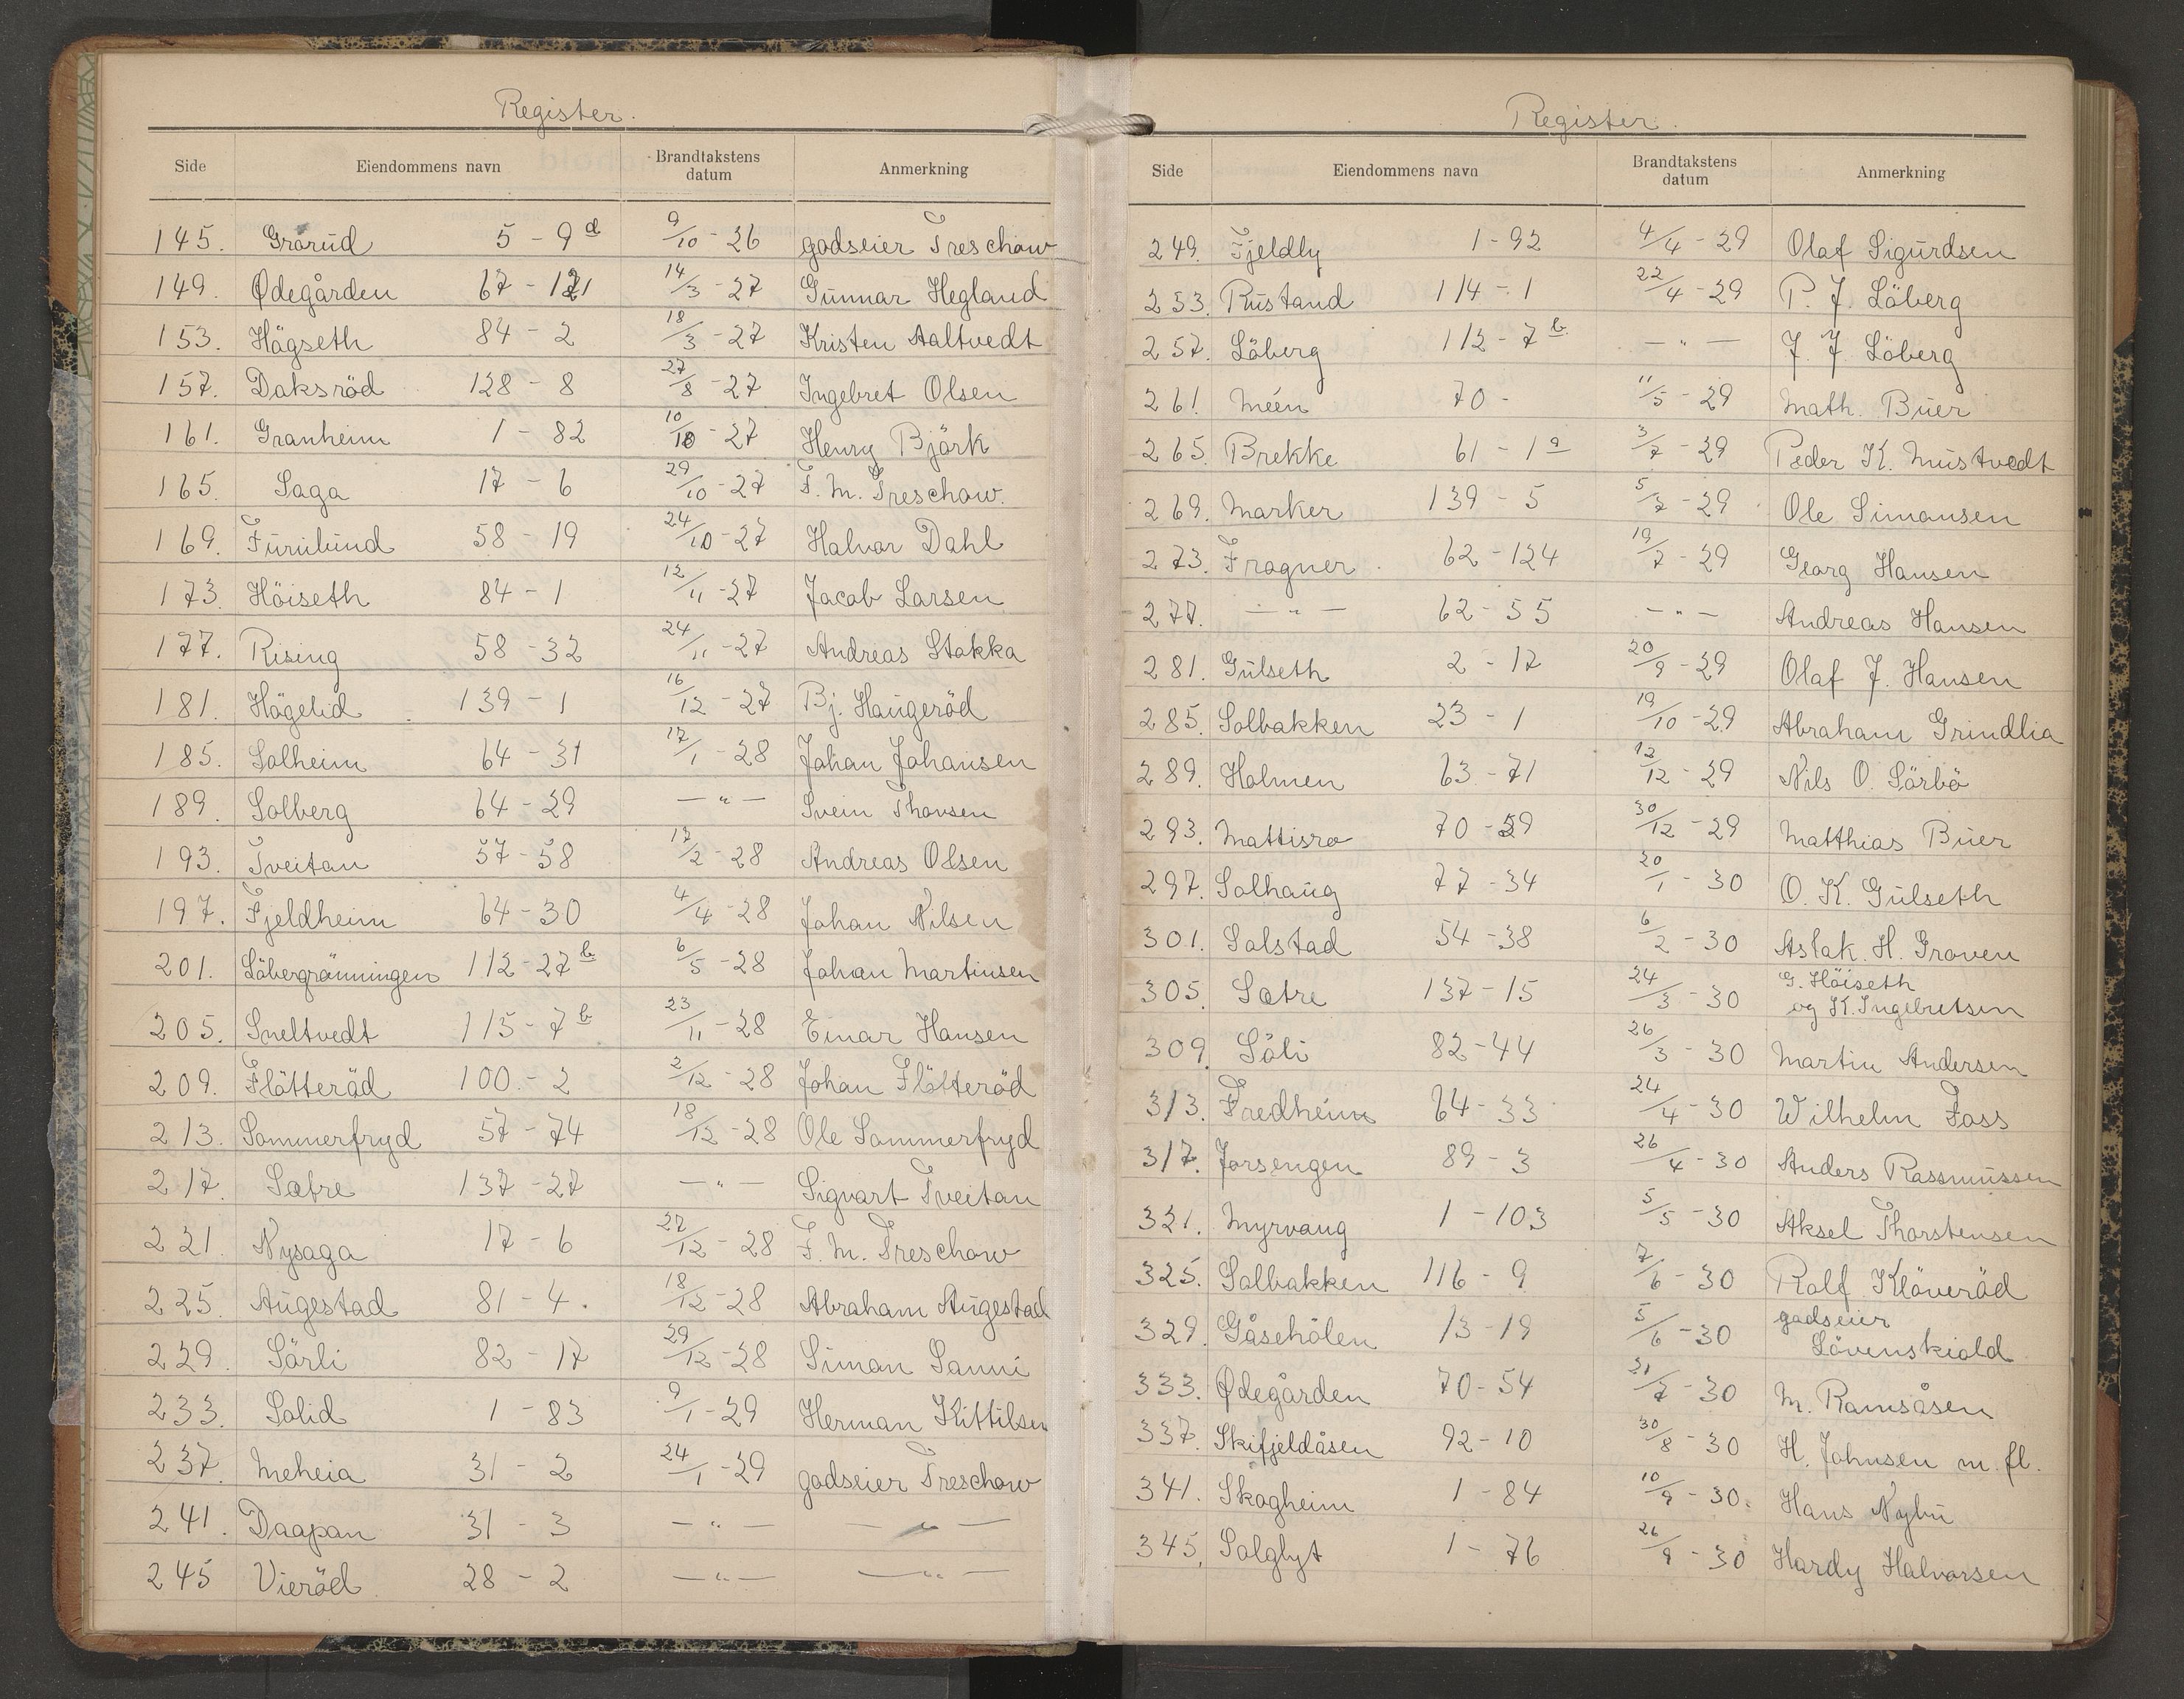 Register.
Side Eiendommens navn Brandtakstens datum Anmerkning
145. Grorud 5 - 9 d 9/10 - 26 godseier Treschow
149. Ødegården 67 - 121 14/3 - 27 Gunnar Hegland
153. Högseth 84 - 2 18/3 - 27 Kristen Aaltvedt
157. Daksröd 128 - 8 27/8 - 27 Ingebret Olsen
161. Granheim 1 - 82 10/10 - 27 Henry Björk
165. Saga 17 - 6 29/10 - 27 F. M. Treschow.
169. Furulund 58 - 19 24/10 - 27 Halvor Dahl
173. Höiseth 84 - 1 12/11 - 27 Jacob Larsen
177. Rising 58 - 32 24/11 - 27 Andreas Stokka
181. Högelid 139 - 1 16/12 - 27 Bj. Haugeröd
185. Solheim 64 - 31 17/1 - 28 Johan Johansen
189. Solberg 64 - 29 — " — Svein Thovsen
193. Tveitan 57 - 58 17/2 - 28 Andreas Olsen
197. Fjeldheim 64 - 30 4/4 - 28 Johan Nilsen
201. Löbergrönningen 112 - 27 b 6/5 - 28 Johan Martinsen
205. Sneltvedt 115 - 7 b 23/11 - 28 Einar Hansen
209. Flötteröd 100. - 2 2/12 - 28 Johan Flötteröd
213. Sommerfryd 57 - 74 18/12 - 28 Ole Sommerfryd
217. Sætre 137 - 27 — " — Sigvart Tveitan
221 Nysaga 17 - 6 27/12 - 28 F. M. Treschow
225. Augestad 81 - 4. 18/12 - 28 Abraham Augestad
229. Sörli 82 - 17 29/12 - 28 Simon Sanni
233. Solid 1 - 83 9/1 - 29 Herman Kittilsen
237. Meheia 31 - 2 24/1 - 29 godseier Treschow
241. Daapan 31 - 3 — " — — " —
245 Vieröd 28 - 2 — " — — " —
Register.
Side Eiendommens navn Brandtakstens datum Anmerkning
249. Fjeldly 1 - 92 4/4 - 29 Olaf Sigurdsen
253. Rustand 114 - 1 22/4 - 29 P. J. Löberg
257. Löberg 112 - 7 b — " — J. J. Löberg
261. Méen 70 - 11/5 - 29 Math. Buer
265. Brekke 61 - 1 a 3/7 - 29 Peder K. Mustvedt
269. Marker 139 - 5 5/7 - 29 Ole Simonsen
273. Frogner. 62 - 124 19/7 - 29 Georg Hansen
277. — " — 62 - 55 — " — Andreas Hansen
281. Gulseth 2 - 17 20/9 - 29 Olaf J. Hansen
285. Solbakken 23 - 1 19/10 - 29 Abraham Grindlia
289. Holmen 63 - 71 12/12 - 29 Nils O. Sörbö
293. Mattisro 70 - 59 30/12 - 29 Matthias Buer
297. Solhaug 77 - 34 20/1 - 30 O. K. Gulseth
301. Solstad 54 - 38 6/2 - 30 Aslak. H. Groven
305. Sætre 137 - 15 24/3 - 30 G. Höiseth
og K. Ingebretsen
309. Söli 82 - 44 26/3 - 30 Martin Andersen
313. Fredheim 64 - 33 24/4 - 30 Wilhelm Foss
317. Jorsengen 89 - 3 26/4 - 30 Anders Rassmussen
321. Myrvang 1 - 103 5/5 - 30 Aksel Thorstensen
325. Solbakken 116 - 9 7/6 - 30 Rolf Klöveröd
329. Gåsehölen 13 - 19 5/6 - 30 godseier
Lövenskiold
333. Ødegården 70 - 54 31/7 - 30 M. Ramsåsen
337. Skifjeldåsen 92 - 10 30/8 - 30 H. Johnsen m. fl.
341. Skogheim 1 - 84 10/9 - 30. Hans Nybu
345. Solglyt 1 - 76 26/9 - 30 Hardy Halvorsen